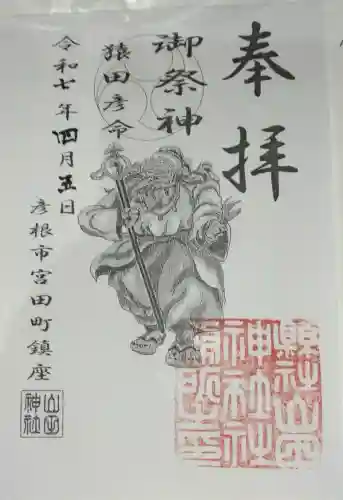 奉拝
御祭神
猿田彦命
令和七年四月五日
彦根市宮田町鎮座
山田神社